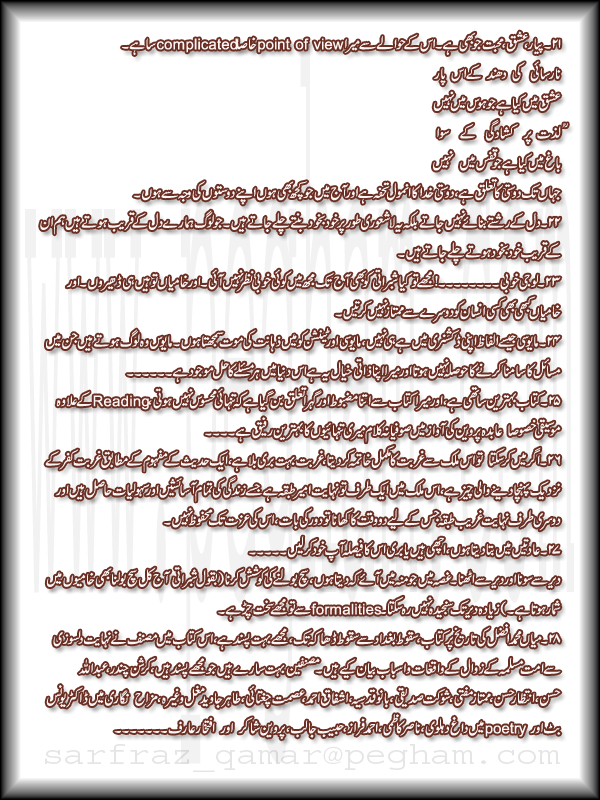 ۲۱۔ پیار، عشق، محبت جو بھی ہے۔ اس کے حوالے سے میرا point of view خاصا complicated سا ہے۔
نارسائی کی دھند کے اس پار
عشق میں کیا ہے جو ہوس میں نہیں
لذت پر کشادگی کے سوا
باغ میں کیا ہے جو قفس میں نہیں
جہاں تک دوستی کا تعلق ہے، دوستی خدا کا انمول تحفہ ہے اور آج میں جو کچھ بھی ہوں اپنے دوستوں کی وجہ سے ہوں۔
۲۲۔ دل کے رشتے بنائے نہیں جاتے بلکہ یہ لاشعوری طور پر خود بخود بنتے چلے جاتے ہیں۔ جو لوگ ہمارے دل کے قریب ہوتے ہیں ہم ان
کے قریب خود بخود ہوتے چلے جاتے ہیں۔
۲۳۔ لو جی خوبی۔۔۔۔۔۔۔۔! مجھے تو کیا شہر اتی کو بھی آج تک مجھ میں کوئی خوبی نظر نہیں آئی۔ اور خامیاں تو ہیں ہی ڈھیروں۔ اور
خامیاں کبھی بھی کسی انسان کو دوسرے سے ممتاز نہیں کرتیں۔
۲۴۔ مایوسی جیسے الفاظ اپنی ڈکشنری میں ہے ہی نہیں، مایوسی اور ٹینشن کو میں ذہانت کی موت سمجھتا ہوں۔ مایوس وہ لوگ ہوتے ہیں جن میں
مسائل کا سامنا کرنے کا حوصلہ نہیں ہوتا اور میرا اپنا ذاتی خیال یہ ہے اس دنیا میں ہر مسئلے کا حل موجود ہے۔۔۔۔۔۔
۲۵۔ کتاب بہترین ساتھی ہے، اور میرا کتاب سے اتنا مضبوط اور گہرا تعلق بن گیا ہے کہ تنہائی محسوس نہیں ہوتی، Reading کے علاوہ
موسیقی خصوصا عابدہ پروین کی آواز میں صوفیانہ کلام میری تنہائیوں کا بہترین رفیق ہے۔۔۔۔
۲۶۔ اگر میں کر سکتا تو اس ملک سے غربت کا مکمل خاتمہ کر دیتا، غربت بہت بری بلا ہے، ایک حدیث کے مفہوم کے مطابق غربت کفر کے
نزدیک پہنچا دینے والی چیز ہے، اس ملک میں ایک طرف تو نہایت امیر طبقہ ہے جسے زندگی کی تمام آسائشیں اور سہولیات حاصل ہیں اور
دوسری طرف نہایت غریب طبقہ جس کے لیے دو وقت کا کھانا تو دور کی بات، اس کی عزت تک محفوظ نہیں۔
۲۷۔ عادتیں میں بتا دیتا ہوں، اچھی ہیں یا بری اس کا فیصلہ آپ خود کر لیں۔۔۔۔۔
دیر سے سونا اور دیر سے اٹھنا۔ غصہ میں جو منہ میں آئے کہہ دیتا ہوں، سچ بولنے کی کوشش کرنا (بقول شہراتی آج کل سچ بولنا بھی خامیوں میں
شمار ہوتا ہے۔) زیادہ دیر تک سنجیدہ نہیں رہ سکتا۔ formalities سے تو مجھے سخت چڑ ہے۔
۲۸۔ میاں محمد افضل کی تاریخ پر کتاب سقوط بغداد سے سقوط ڈھاکہ تک، مجھے بہت پسند ہے، اس کتاب میں مصنف نے نہایت دلسوزی
سے امت مسلمہ کے زوال کے واقعات و اسباب بیان کیے ہیں۔ مصنفین بہت سارے ہیں جو مجھے پسند ہیں، کرشن چندر، عبداللہ
حسن، انتظار حسن، ممتاز مفتی، شوکت صدیقی، بانو قدسیہ، اشفاق احمد، عصمت چغتائی، طاہر جاوید مغل وغیرہ، مزاح نگاری میں ڈاکٹر یونس
بٹ اور poetry میں داغ دہلوی، ناصر کاظمی، احمد فراز، حبیب جالب، پروین شاکر اور افتخار عارف۔۔۔۔۔۔
sarfraz_qamar@pegham.com